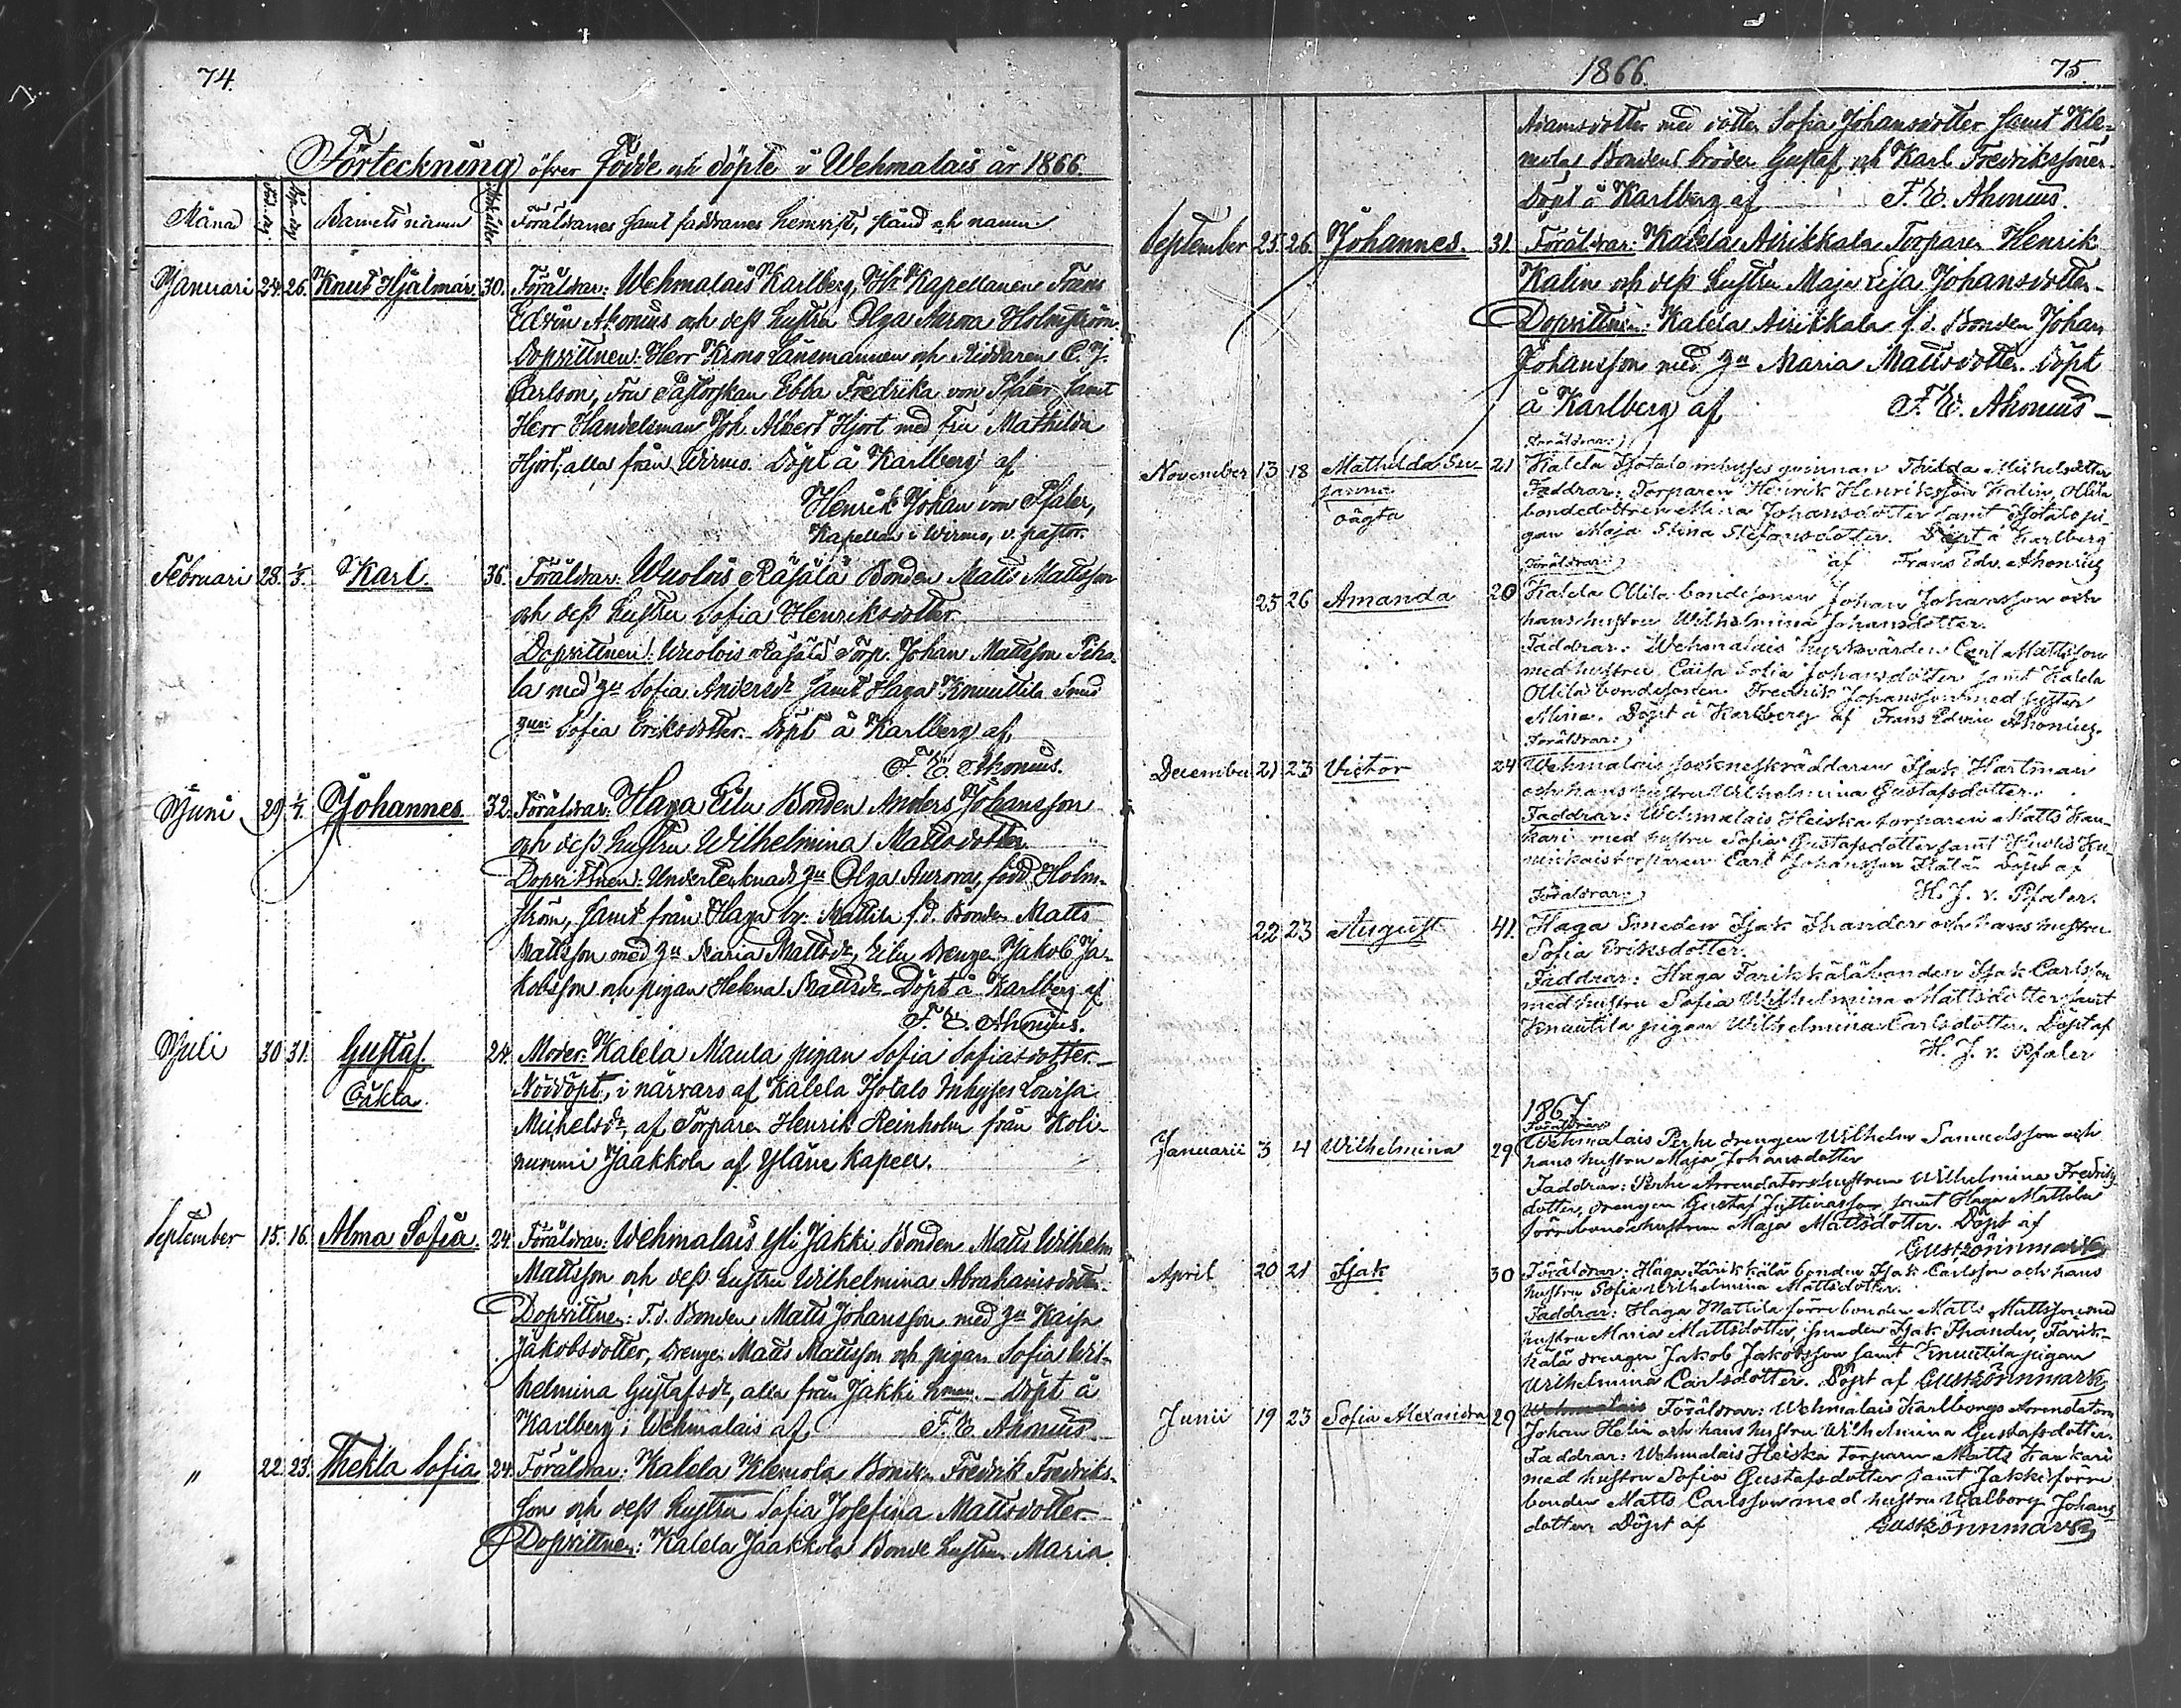 74.
Förteckning öfver födde och döpte i Wehmalais år 1866.
Månad Barnets namn Föräldrarnes samt faddrarnes hemvist, stånd och namn
Januari 24. 26. Knut Hjalmar. 30. Föräldrar: Wehmalais Karlberg, Hr Kapellanen Frans
Edvin Ahonius och dess hustru Olga Aurora Holmström.
Dopvittnen: Herr Krono Länsmannen och Riddaren C. J.
Carlson, Fru Pastorskan Ebba Fredrika von Pfaler samt
Herr Handelsman Joh. Albert Hjort med fru Mathilda
Hjort, alla från Wirmo. Döpt å Karlberg af
Henrik Johan von Pfaler,
Kapellan i Wirmo, v. pastor.
Februari 28. 1/3. Karl. 36. Föräldrar: Wuolois Räsälä Bonden Matts Mattsson
och dess hustru Sofia Henriksdotter
Dopvittnen: Wuolois Räsälä Torp. Johan Mattsson Piho-
la med hu Sofia Andersdr samt Haga Knuuttila Smed
Sofia Eriksdotter. Döpt å Karlberg af,
F. E. Ahonius.
Juni 29 1/7. Johannes. 32. Föräldrar: Haga Eilu Bonden Anders Johansson
och dess hustru Wilhelmina Mattsdotter
Dopvittnen: Undertecknads hu Olga Aurora, född Holm-
ström, samt från Haga by: Mattila f.d. Bonden Matts
Mattsson med hu Maria Mattsdr, Eilu Drengen Jakob Ja-
kobsson och pigan Helena Mattsdr. Döpt å Karlberg af
F. E. Ahonius.
Juli 30 31. Gustaf. 24. Moder: Kalela Maula pigan Sofia Sofiasdotter.
Oäkta. Nöddöpt, i närvaro af Kalela Isotalo Inhyses Lovisa
Michelsdr, af Torparen Henrik Reinholm från Koli-
nummi Jaakkola af Yläne kapell.
September 15. 16. Alma Sofia. 24. Föräldrar: Wehmalais Yli Jakki Bonden Matts Wilhelm
Mattsson och dess hustru Wilhelmina Abrahamsdotter.
Dopvittnen: F.d. Bonden Matts Johansson med hu Kaisa
Jakobsdotter, Drengen Matts Mattsson och pigan Sofia Wil-
helmina Gustafsdr, alla från Jakki hman. Döpt å
Karlberg i Wehmalais af F. E. Ahonius
" 22. 23. Thekla Sofia 24. Föräldrar: Kalela Klemola Bonden Fredrik Fredriks-
son och dess hustru Sofia Josefina Mattsdotter
Dopvittnen: Kalela Jaakkola Bonde hustrun Maria
1866. 75.
Adamsdotter med dotter Sofia Johansdotter samt Kle-
mola Bondens bröder Gustaf och Karl Fredrikssöner.
Döpt å Karlberg af F. E. Ahonius.
September 25. 26 Johannes. 31. Föräldrar: Kalela Airikkala Torparen Henrik
Kalin och dess hustru Maja Lisa Johansdotter
Dopvittnen: Kalela Airikkala f.d. Bonden Johan
Johansson med hu Maria Mattsdotter. Döpt
å Karlberg af F. E. Ahonius
Föräldrar:
November 13 18 Mathilda Su- 21 Kalela Isotalo inhyses qvinnan Thilda Michelsdotter
sanna Faddrar: Torparen Henrik Henriksson Kalin, Ollila
oägta bondedottren Mina Johansdotter samt Isotalo pi-
gan Maja Stina Stefansdotter. Döpt å Karlberg
Föräldrar: af Frans Edv. Ahonius
25 26 Amanda 20 Kalela Ollila bondesonen Johan Johansson och
hans hustru Wilhelmina Johansdotter.
Faddrar: Wehmalais Carl Mattsson
med hustru Caisa Sofia Johansdotter samt Kalela
Ollila bondesonen Fredrik Johansson med syster
Mina. Döpt å Karlberg af Frans Edvin Ahonius.
Föräldrar:
December 21 23 Victor 24 Wehmalais sockneskräddaren Isak Hartman
och hans hustru Wilhelmina Gustafsdotter.
Faddrar: Wehmalais Heiska torparen Matts Kau-
kari med hustru Sofia Gustafsdotter samt
torparen Carl Johansson Kälä. Döpt af
Föräldrar: H. J. v. Pfaler.
22 23 August 41. Haga Smeden Isak Thander och hans hustru
Sofia Eriksdotter.
Faddrar: Haga Tarikkälä bonden Isak Carlsson
med hustru Sofia Wilhelmina Mattsdotter samt
Knuutila pigan Wilhelmina Carlsdotter. Döpt af
H. J. v. Pfaler
1867
Föräldrar:
Januarii 3 4 Wilhelmina 29 Wehmalais Perhe drengen Wilhelm Samuelsson och
hans hustru Maja Johansdotter
Faddrar: Perhe Arrendators hustrun Wilhelmina Fredriks-
dotter, drengen Gustaf samt Haga Mattila
förre bondehustrun Maja Mattsdotter. Döpt af
Gust Rönnmark
April 20 21 Isak 30 Föräldrar: Haga Tarikkälä bonden Isak Carlsson och hans
hustru Sofia Wilhelmina Mattsdotter.
Faddrar: Haga Mattila förre bonden Matts Mattsson med
hustru Maria Mattsdotter, smeden Isak Thander, Tarik-
kälä drengen Jakob Jakobsson samt Knuutila pigan
Wilhelmina Carlsdotter. Döpt af Gust Rönnmark
Junii 19 23 Sofia Alexandra 29 Wehmalais Föräldrar: Wehmalais Karlbergs Arendatorn
Johan Helin och hans hustru Wilhelmina Gustafsdotter.
Faddrar: Wehmalais Heiska Torparen Matts Kaukari
med hustru Sofia Gustafsdotter samt Jakki förre
bonden Matts Carlsson med hustru Walborg Johans-
dotter. Döpt af Gust Rönnmark